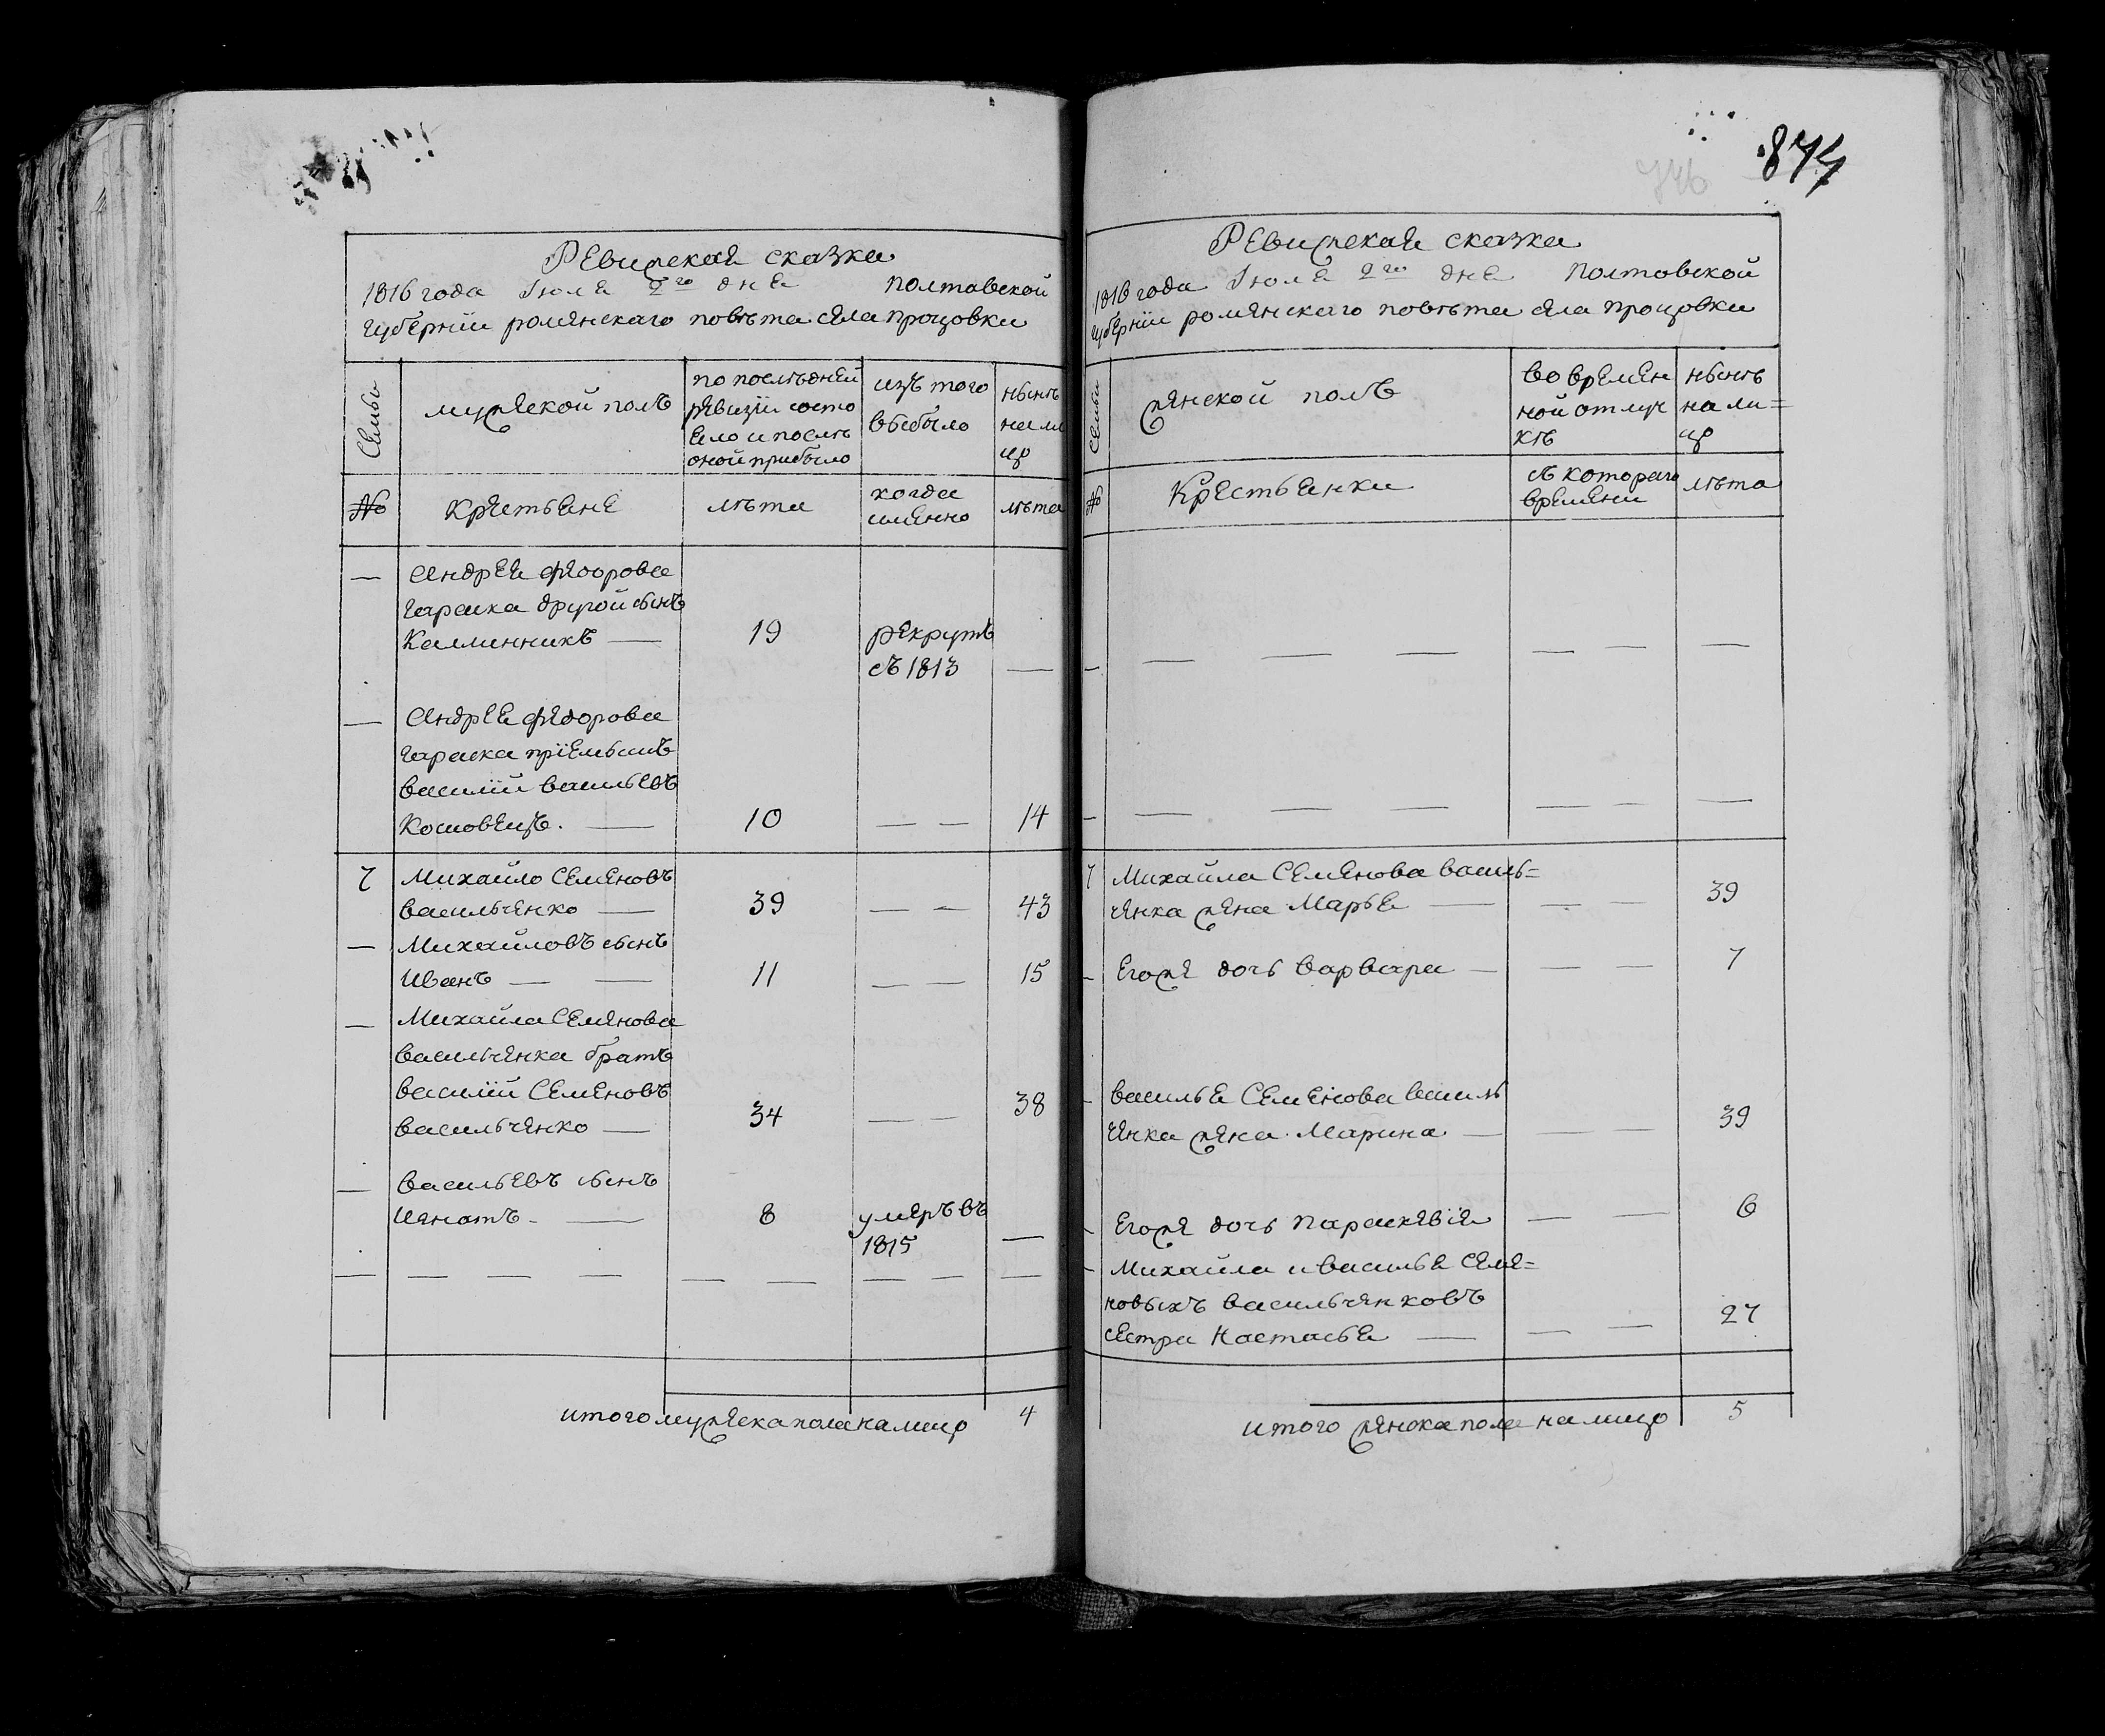 Ревижская сказка
1816 года Iюля 2го дня Полтавской
губернiи роменскаго повѣта села процовки
Семьи
мужеской полъ
по послѣдней
ревизiи состо
яло и послѣ
оной прибыло
изъ того
выбыло
нынѣ
на ли
цо
№
Крестьяне
лѣта
когда
именно
лѣта
— Андрея федорова
гараска другой сынъ
Калинникъ — 19 рекрутъ
съ 1813 —
— Андрея федорова
гараска прiемышъ
василiй васильевъ
Кошовецъ. — 10 — — 14
7 Михайло Семеновъ
васильченко — 39 — — 43
— Михайловъ сынъ
Иванъ — — 11 — — 15
— Михайла Семенова
васильченка братъ
василiй Семеновъ
васильченко — 34 — — 38
— васильевъ сынъ
Игнатъ — 8 умеръ въ
1815 —
— — — — — — — — —
итого мужеска пола налицо 4
874
746
Ревижская сказка
1816 года Iюля 2го дня Полтавской
губернiи роменскаго повѣта села процовки
Семьи
женской полъ
во времен
ной отлуч
кѣ
нынѣ
на ли=
цо
№
Крестьянки
съ котораго
времени
лѣта
— — — — — — —
— — — — — — —
7 Михайла Семенова василь=
ченка жена Марья — — — 39
— Егоже дочь варвара — — — 7
— василья Семенова василь
ченка жена Марина — — — 39
— Егоже дочь параскевiя — — 6
— Михайла и василья Семе=
новыхъ васильченковъ
сестра Настасья — — — 27
итого женска пола налицо 5